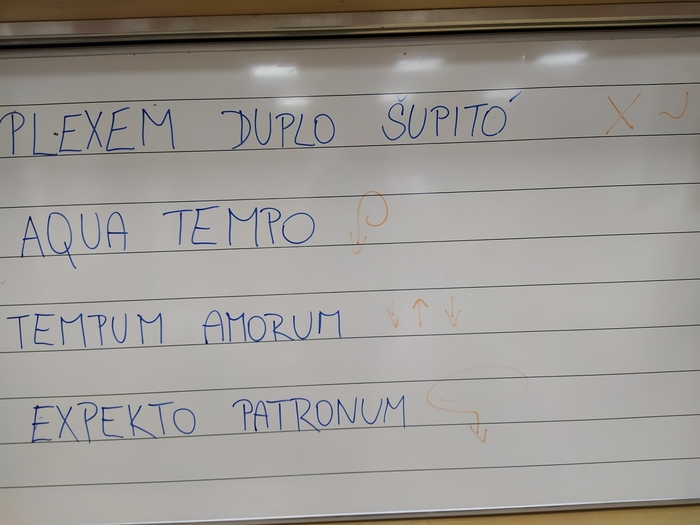 PLEXEM DUPLO ŠUPITÓ X
AQUA TEMPO
TEMPUM AMORUM ↓ ↑ ↓
EXPEKTO PATRONUM